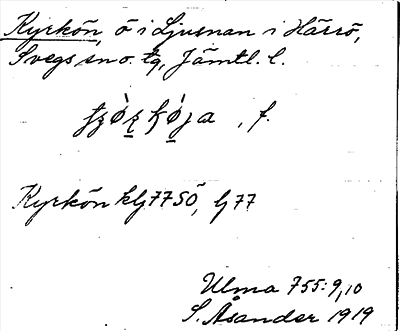 Kyrkön, ö i Ljusnan i Härrö,
Svegs sn o. tg, Jämtl. l.
, f.
Kyrkön klj 77 SÖ, lj 77
Ulma 755:9,10
S. Åsander 1919